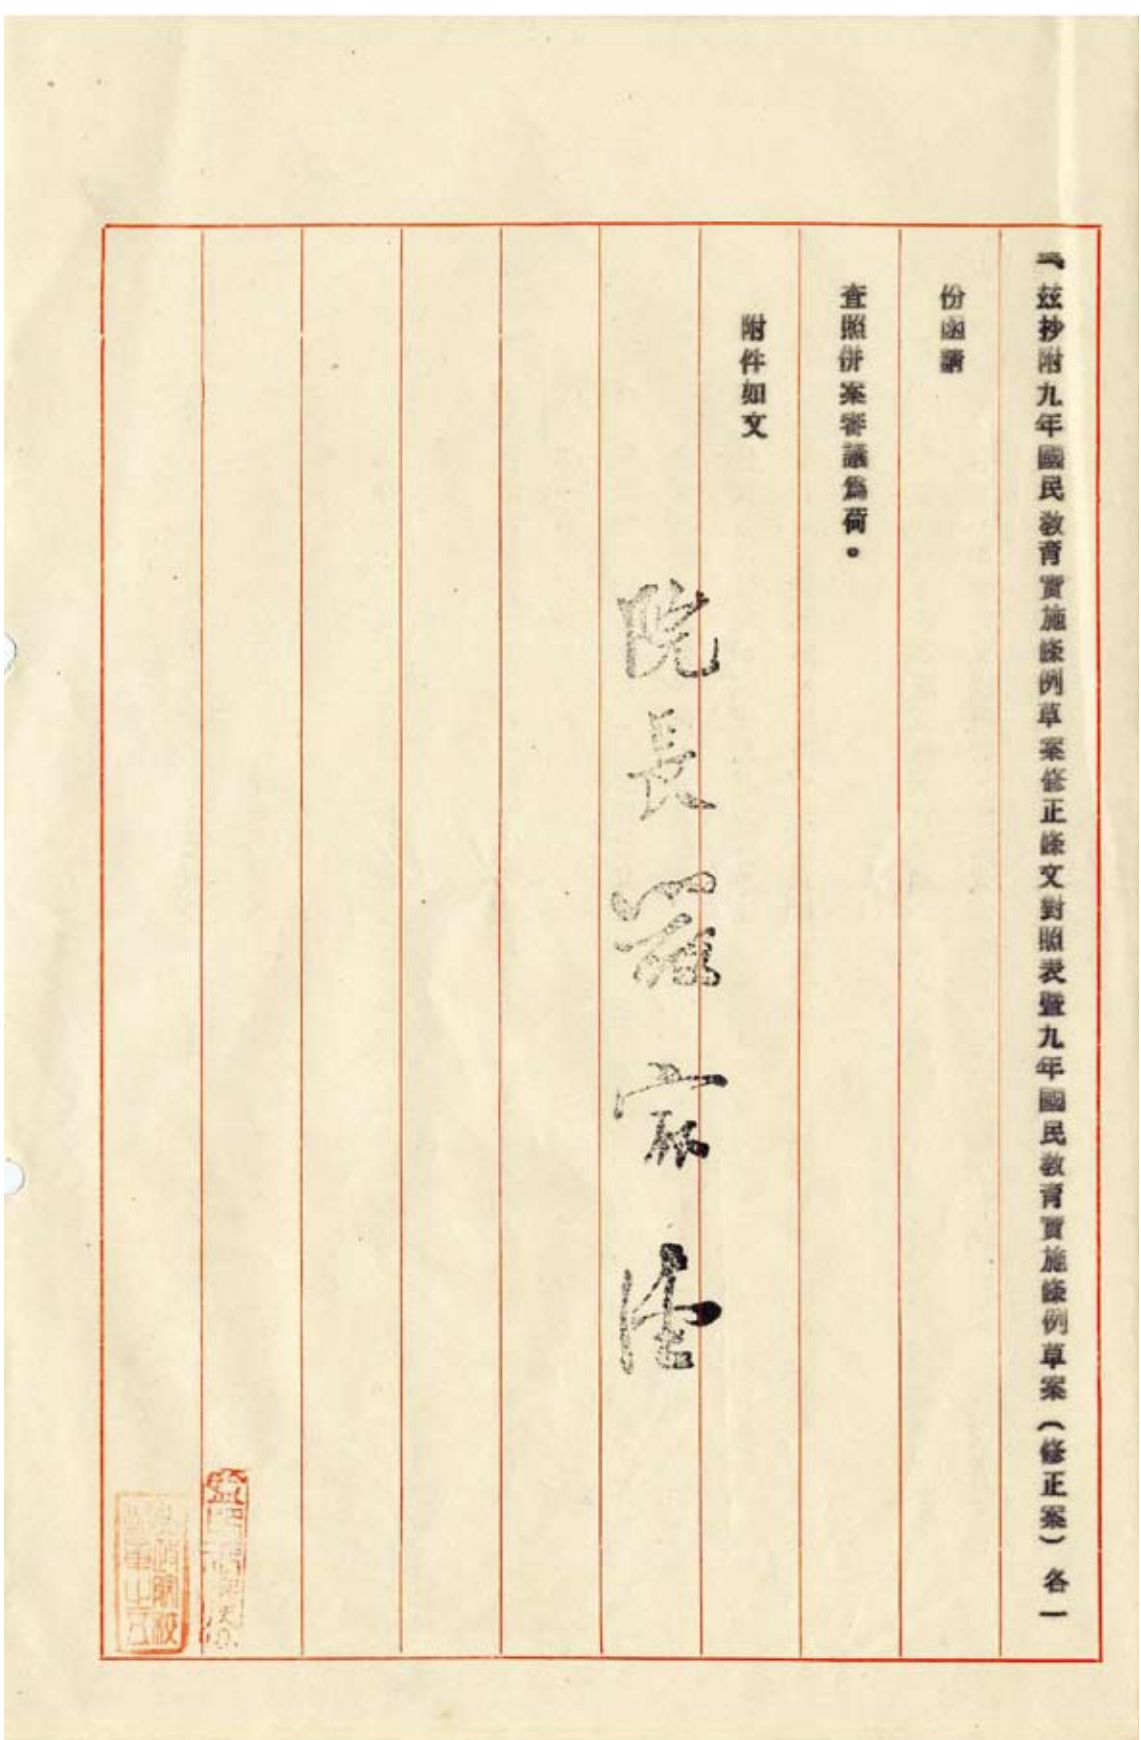 一、茲抄附九年國民教育實施條例草案修正條文對照表暨九年國民教育實施條例草案(修正案)各一
份函請
查照併案審議爲荷。
附件如文
院長嚴家淦